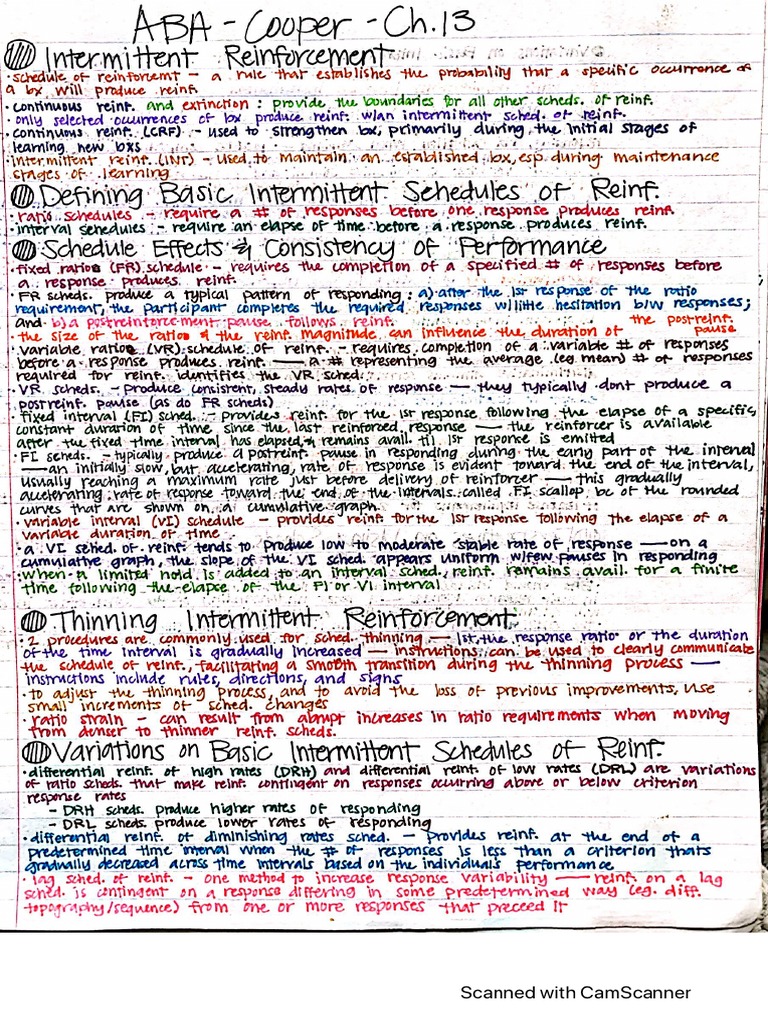 ABA - Cooper - Ch.13
Intermittent Reinforcement
·schedule of reinforcemt - a rule that establishes the probability that a specific occurrence of
a bx will produce reinf.
·continuous reinf. and extinction: provide the boundaries for all other scheds. of reinf.
·only selected occurrences of bx produce reinf. w/an intermittent sched. of reinf.
·continuous reinf. (CRF) - used to strengthen bx, primarily during the initial stages of
learning new bxs
·intermittent reinf. (INT) - used to maintain an established bx, esp. during maintenance
stages of learning
Defining Basic Intermittent Schedules of Reinf.
·ratio schedules - require a # of responses before one response produces reinf.
·interval schedules - require an elapse of time before a response produces reinf.
Schedule Effects & Consistency of Performance
·fixed ratio (FR) schedule - requires the completion of a specified # of responses before
a response produces reinf.
·FR scheds. produce a typical pattern of responding: a) after the 1st response of the ratio
requirement, the participant completes the required responses w/little hesitation b/w responses;
and b) a postreinforcement pause follows reinf.
·the size of the ratio & the reinf. magnitude can influence the duration of the postreinf. pause
·variable ratio (VR) schedule of reinf. - requires completion of a variable # of responses
before a response produces reinf. — a # representing the average (eg. mean) # of responses
required for reinf. identifies the VR sched.
·VR scheds. - produce consistent, steady rates of response — they typically dont produce a
postreinf. pause (as do FR scheds)
·fixed interval (FI) sched. - provides reinf. for the 1st response following the elapse of a specific,
constant duration of time since the last reinforced response — the reinforcer is available
after the fixed time interval has elapsed & remains avail. til 1st response is emitted
·FI scheds. - typically produce a postreinf. pause in responding during the early part of the interval
— an initially slow, but accelerating, rate of response is evident toward the end of the interval,
usually reaching a maximum rate just before delivery of reinforcer — this gradually
accelerating rate of response toward the end of the intervals called FI scallop bc of the rounded
curves that are shown on a cumulative graph
·variable interval (VI) schedule - provides reinf for the 1st response following the elapse of a
variable duration of time
·a VI sched. of reinf. tends to produce low to moderate stable rate of response — on a
cumulative graph, the slope of the VI sched. appears uniform w/few pauses in responding
·when a limited hold is added to an interval sched., reinf. remains avail. for a finite
time following the elapse of the FI or VI interval
Thinning Intermittent Reinforcement
·2 procedures are commonly used for sched. thinning — 1st, the response ratio or the duration
of the time interval is gradually increased — instructions can be used to clearly communicate
the schedule of reinf., facilitating a smooth transition during the thinning process —
instructions include rules, directions, and signs
·to adjust the thinning process, and to avoid the loss of previous improvements, use
small increments of sched. changes
·ratio strain - can result from abrupt increases in ratio requirements when moving
from denser to thinner reinf. scheds.
Variations on Basic Intermittent Schedules of Reinf.
·differential reinf. of high rates (DRH) and differential reinf. of low rates (DRL) are variations
of ratio scheds. that make reinf. contingent on responses occurring above or below criterion
response rates
- DRH scheds. produce higher rates of responding
- DRL scheds. produce lower rates of responding
·differential reinf. of diminishing rates sched. - provides reinf. at the end of a
predetermined time interval when the # of responses is less than a criterion thats
gradually decreased across time intervals based on the individuals performance
·lag sched. of reinf. - one method to increase response variability — reinf. on a lag
sched. is contingent on a response differing in some predetermined way (eg. diff.
topography/sequence) from one or more responses that preceed it
Scanned with CamScanner